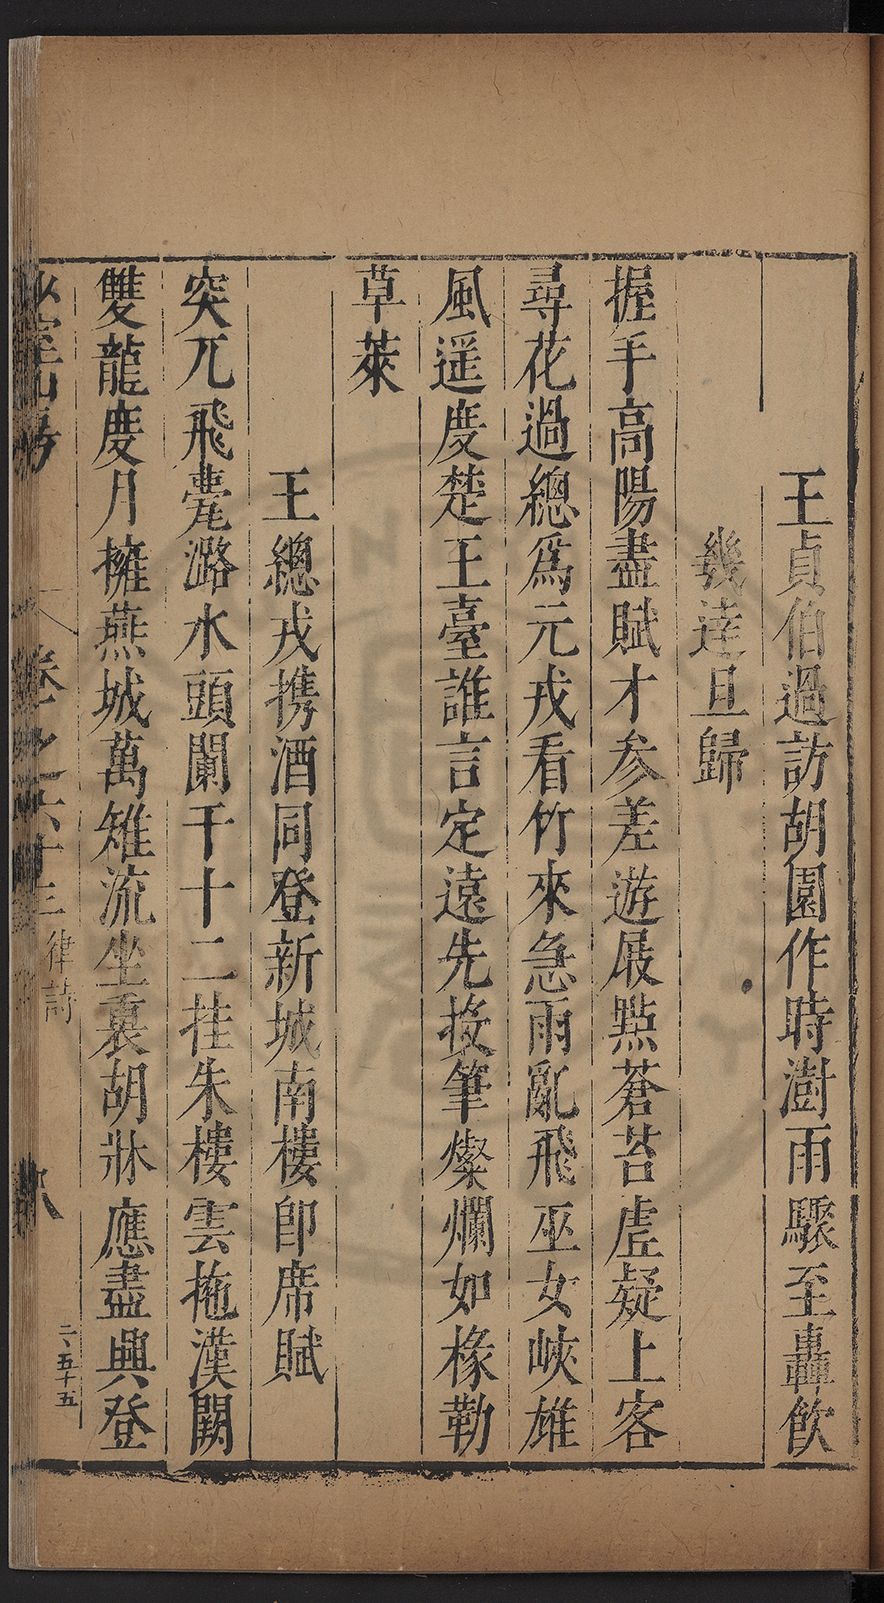 王貞伯過訪胡園作時澍雨驟至轟飲
幾達旦歸
握手高陽盡賦才参差遊屐㸃蒼苔虛疑上客
尋花過總爲元戎看竹來急雨亂飛巫女峽雄
風遥度楚王臺誰言定遠先投筆燦爛如椽勒
草萊
王總戎携酒同登新城南樓卽席賦
突兀飛甍潞水頭闌干十二挂朱樓雲拖漢闕
雙龍度月擁燕城萬雉流坐裏胡牀應盡興登
卷之六十三 律詩
二、五十五